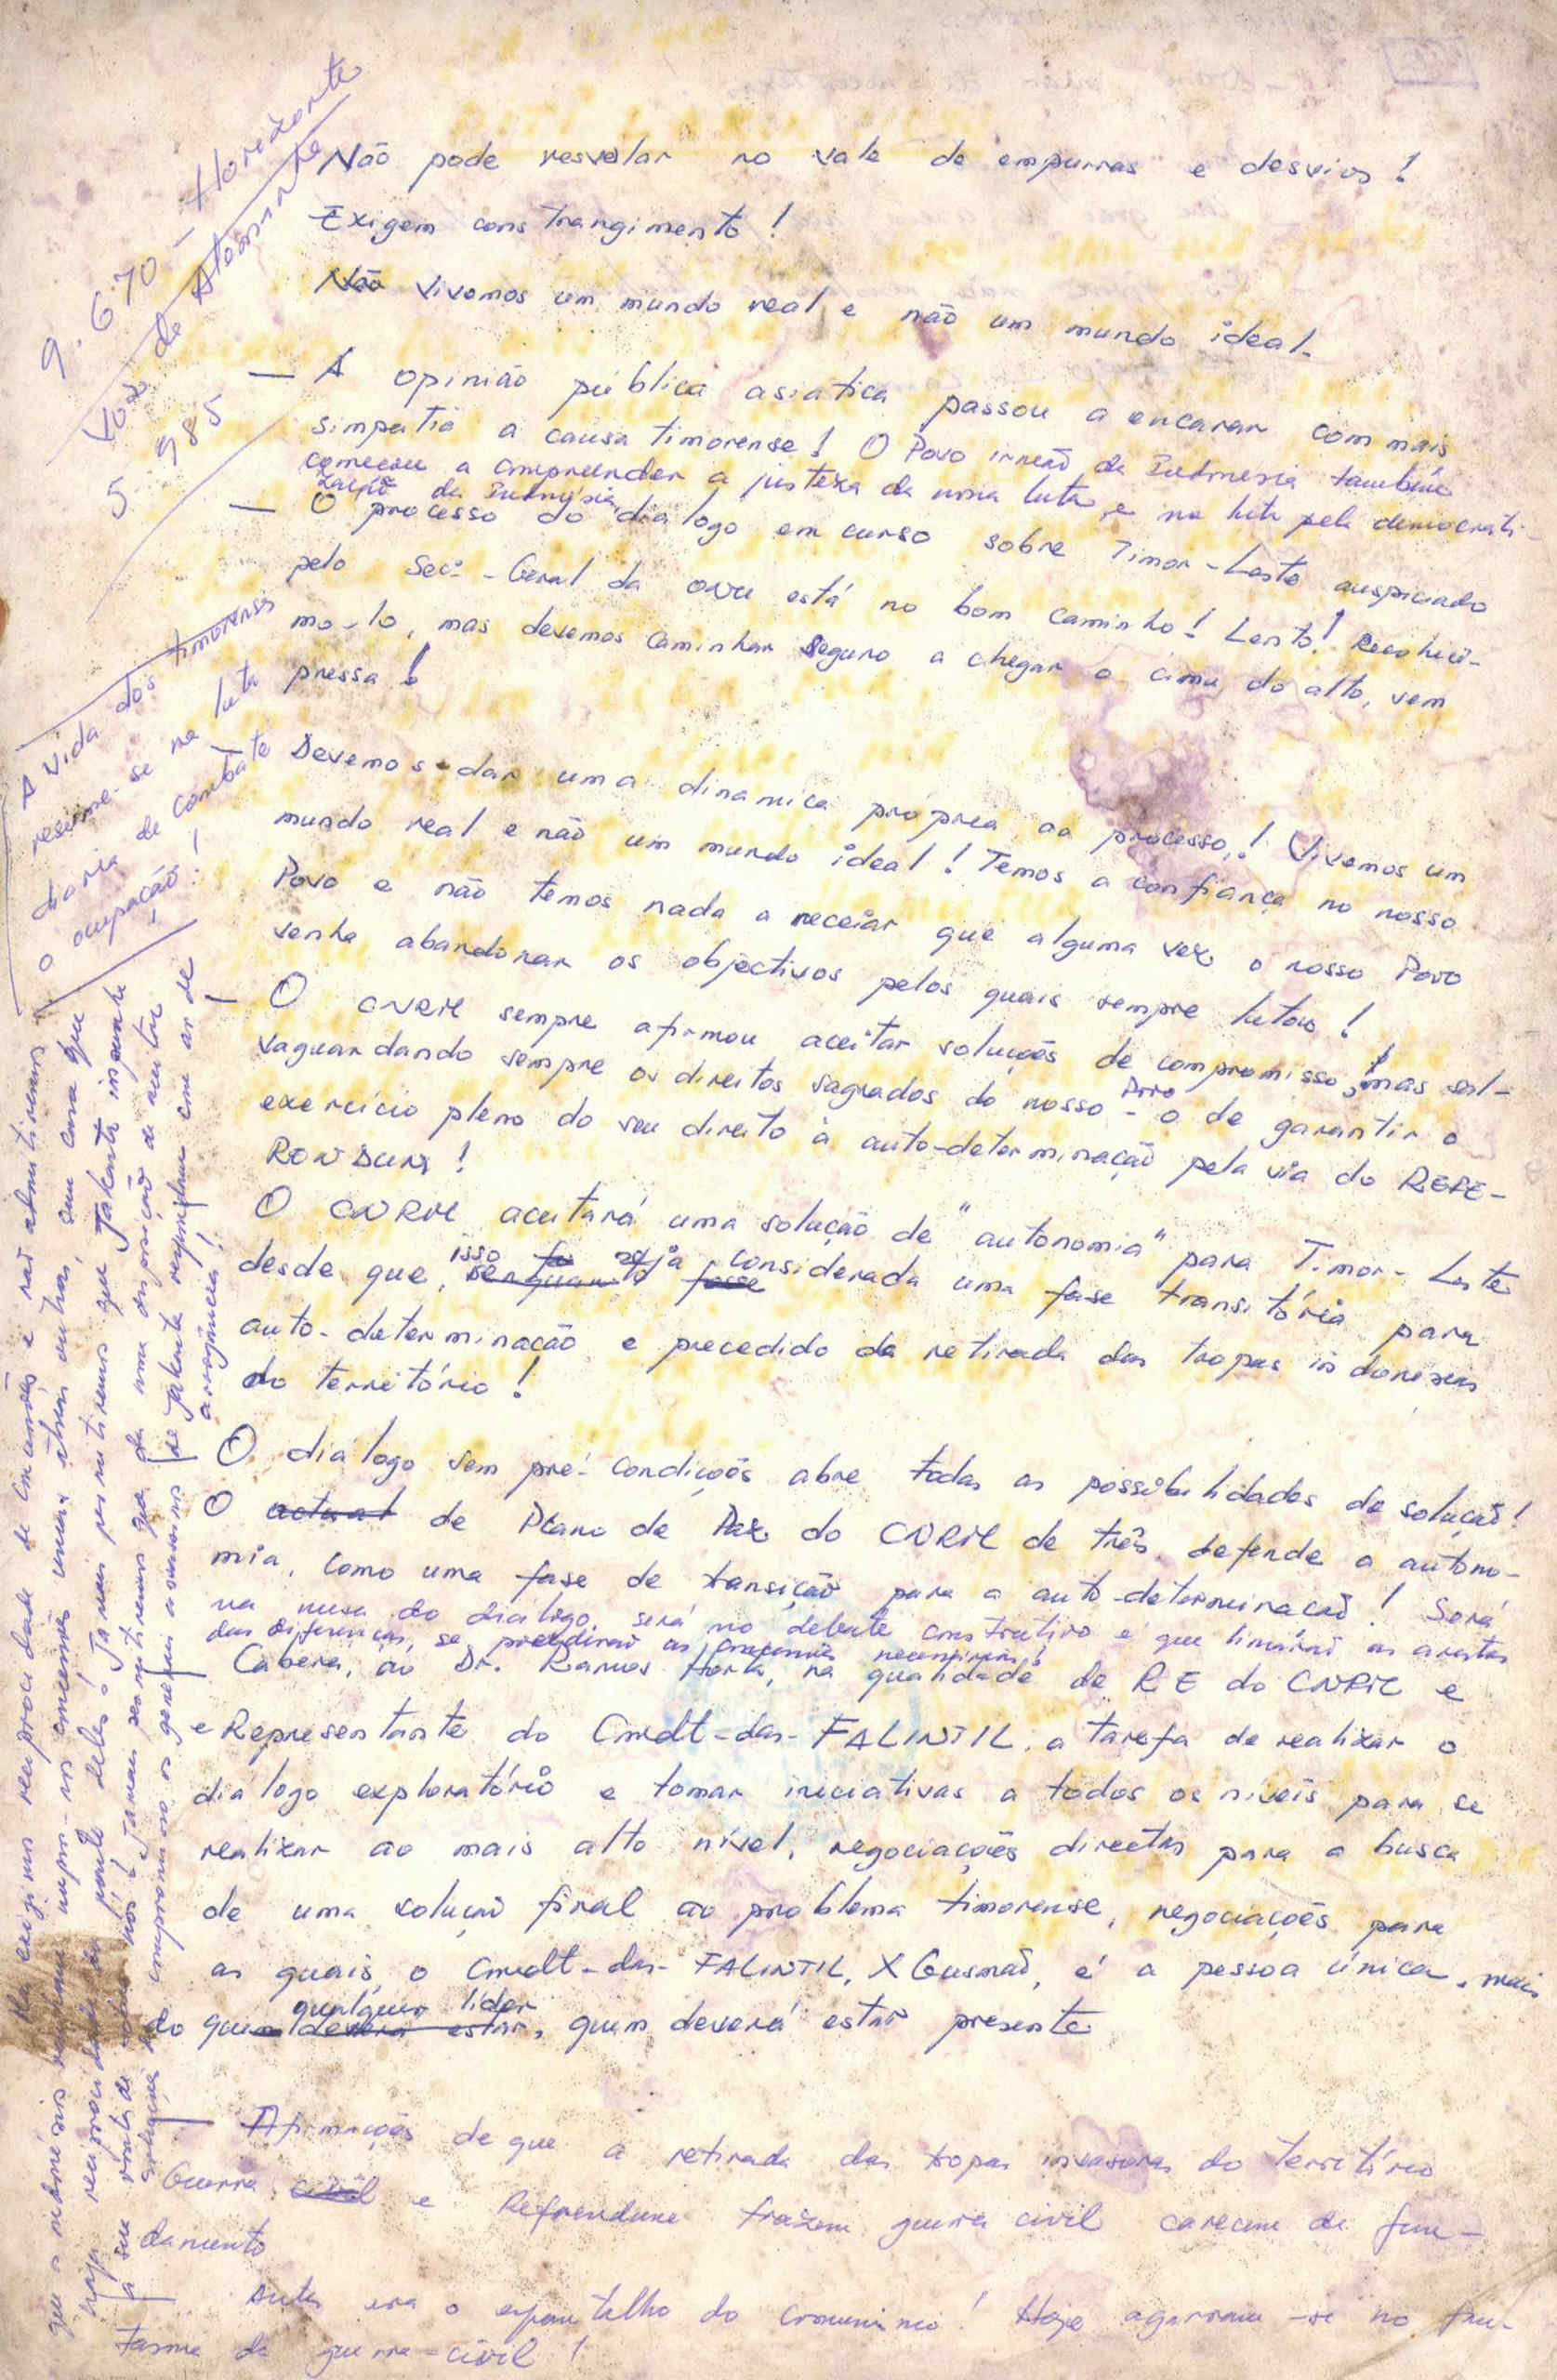 9.670 - Horizonte
Voz de Atominte
5.985
Não pode resvalar no vale de empurras e desvios!
Exigem constrangimento!
Não Vivemos um mundo real e não um mundo ideal.
— A opinião pública asiatica passou a encarar com mais
simpatia a causa timorense! O Povo irmão da Indonesia também
começou a compreender a justeza da nossa luta, e na luta pela democrati-
zação da Indonésia
— O processo do dialogo em curso sobre Timor-Leste auspiciado
pelo Sec.-Geral da ONU está no bom caminho! Lento! Reconhecê-
mo-lo, mas devemos caminhar seguro a chegar o cimo do alto, sem
pressa!
A vida dos timorenses
resume-se na luta
diaria de combate
o ocupação!
— Devemos dar uma dinamica própria ao processo! Vivemos um
mundo real e não um mundo ideal! Temos a confiança no nosso
Povo e não temos nada a receiar que alguma vez o nosso Povo
venha abandonar os objectivos pelos quais sempre lutou!
— O CNRM sempre afirmou aceitar soluções de compromisso, mas sal-
vaguardando sempre os direitos sagrados do nosso Povo - o de garantir o
exercício pleno do seu direito à auto-determinação pela via do REFE-
RONDUM!
O CNRM aceitará uma solução de "autonomia" para Timor-Leste
desde que, isso seja considerada uma fase transitória para
auto-determinação e precedido da retirada das tropas indonesias
do território!
O diálogo sem pré-condições abre todas as possibilidades de solução!
O actual de Plano de Paz do CNRM de três, defende a autono-
mia, como uma fase de transição para a auto-determinação! Será
na mesa do diálogo, será no debate construtivo é que limarão as arestas
das diferenças, se as necessárias!
Caberá, ao Dr. Ramos Horta, na qualidade de RE do CNRM e
e Representante do Cmdt-das-FALINTIL, a tarefa de realizar o
diálogo exploratório e tomar iniciativas a todos os níveis para se
realizar ao mais alto nível, negociações directas para a busca
de uma solução final ao problema timorense, negociações para
as quais, o Cmdt-das-FALINTIL, X Gusmão, é a pessoa única, mais
do que qualquer líder, quem deverá estar presente
— Afirmações de que a retirada das tropas invasoras do território
Guerra civil e Referendum trazem guerra civil carecem de fun-
damento
— Antes era o espantalho do comunismo! Hoje agarram-se no fan-
tasma da guerra-civil!
reciprocidade de concessões e não admitiremos
que os indonésios
haja reciprocidade da parte deles! Jamais permitiremos que Jakarta
nós! Jamais permitiremos que
compromisso os generais de Jakarta respondam com ar de
arrogância!